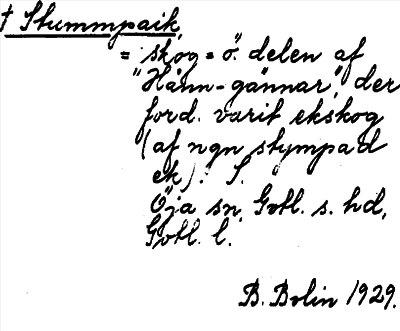 † Stummpaik,
= skog = ö. delen af
"Hånn-gännar", der
ford. varit ekskog
(af ngn stympad
ek). S.
Öja sn, Gotl. s. hd,
Gotl. l.
B. Bolin 1929.